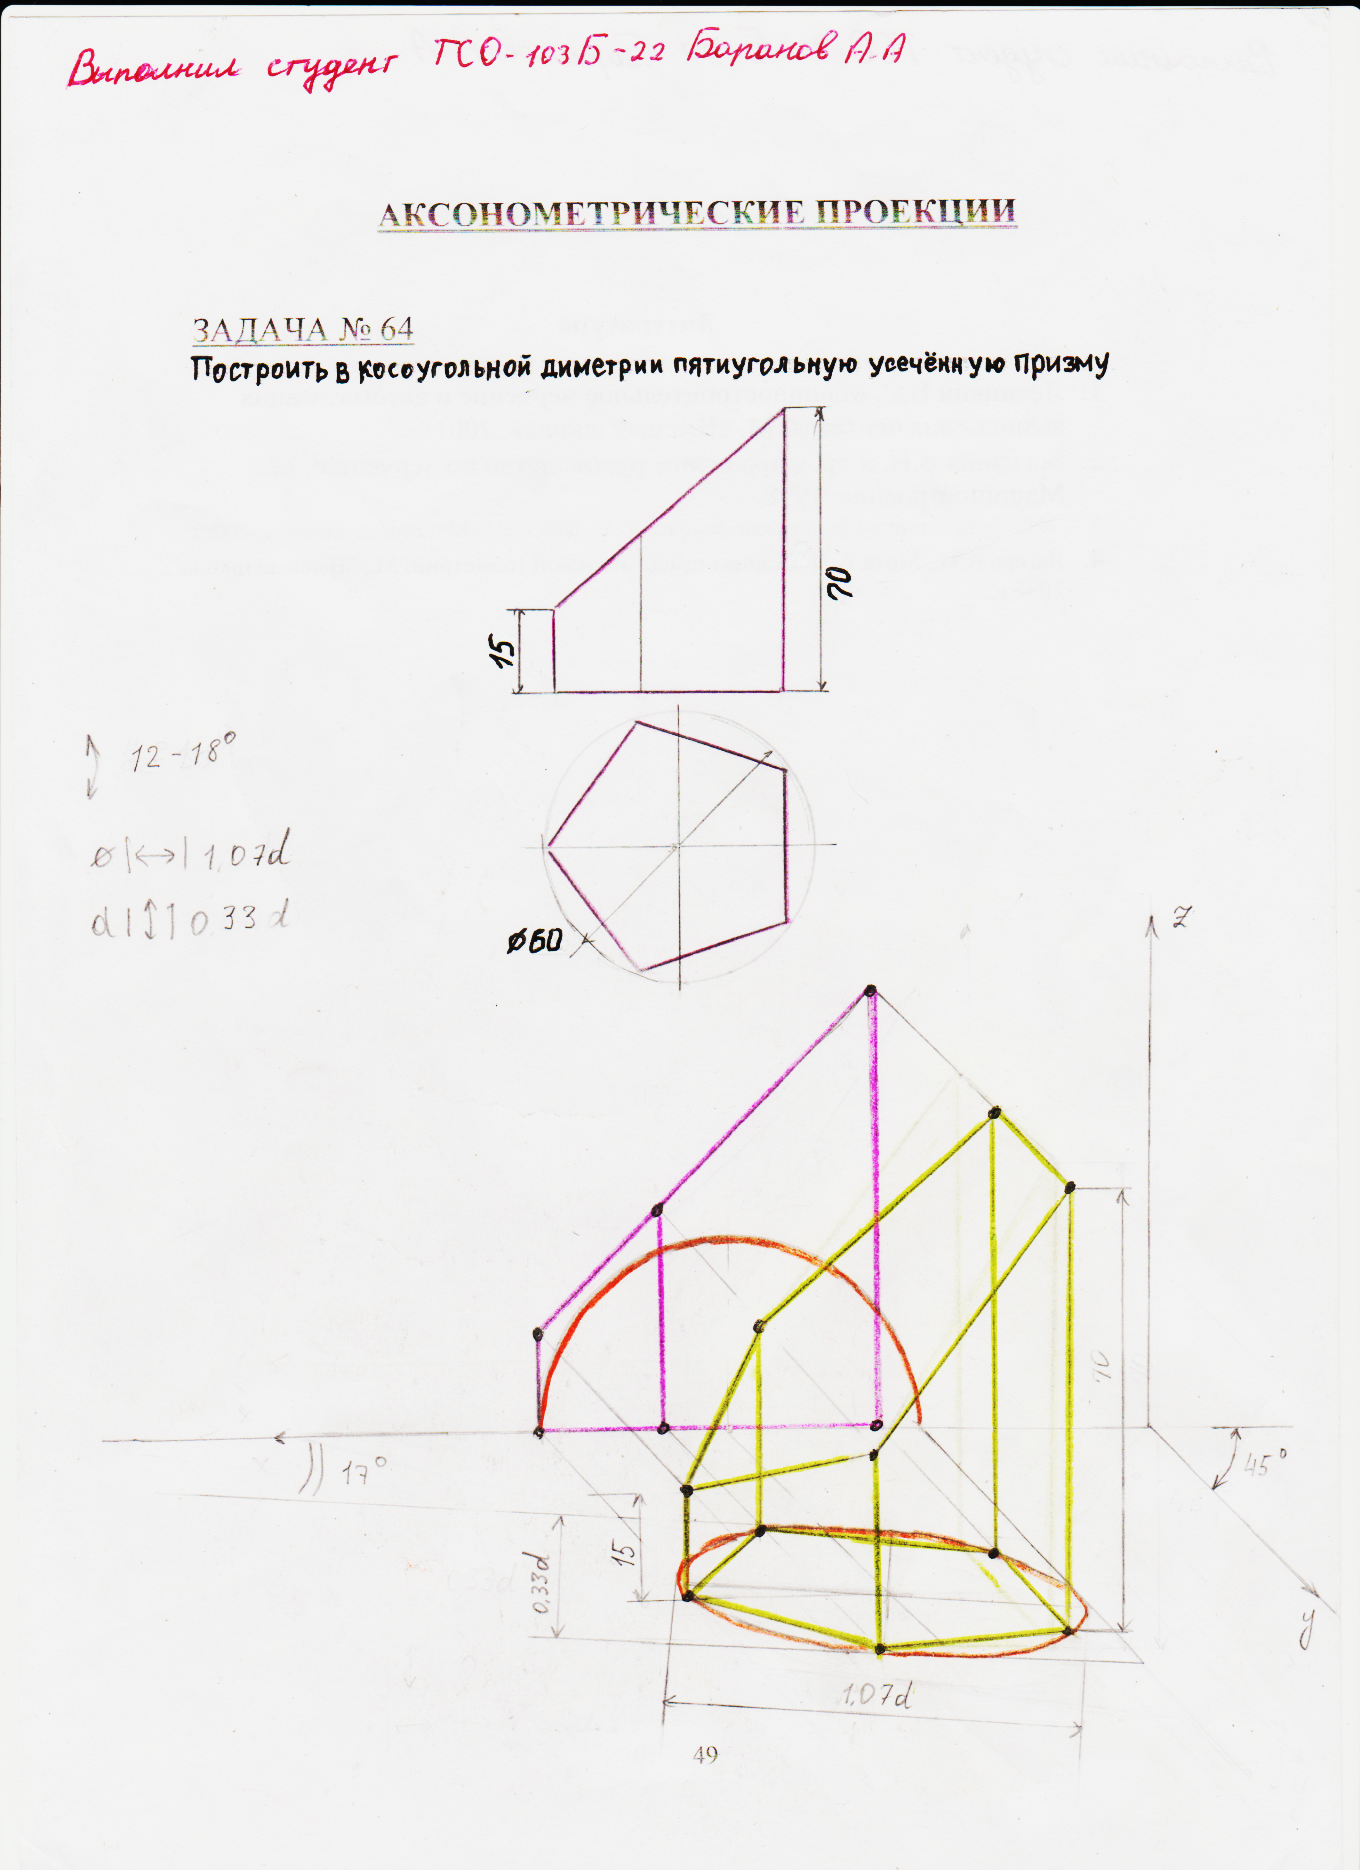 Выполнил студент ГСО-103Б-22 Баранов А.А
АКСОНОМЕТРИЧЕСКИЕ ПРОЕКЦИИ
ЗАДАЧА № 64
Построить в косоугольной диметрии пятиугольную усечённую призму
70
15
12-18°
ø|↔| 1,07d
d|↕| 0.33d
ø60
z
70
45°
17°
15
0,33d
y
1,07d
49